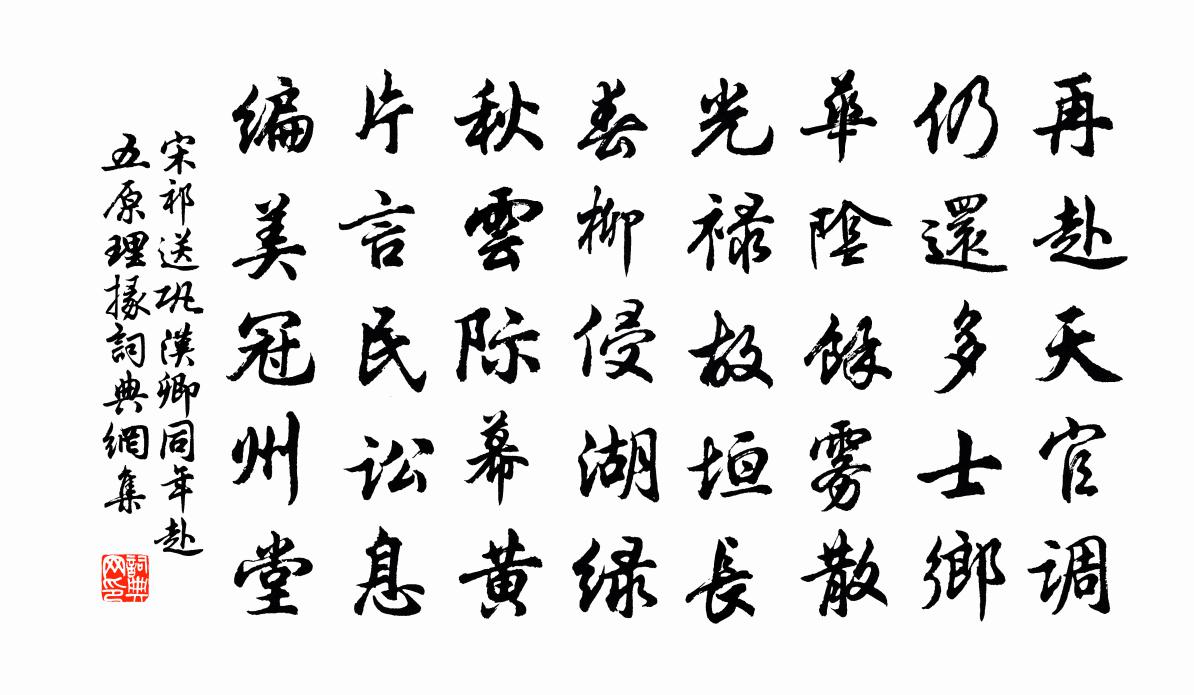 再赴天官调
仍還多士鄉
華陰餘雾散
光禄故垣長
春柳侵湖绿
秋雲际幕黄
片言民讼息
编美冠州堂
宋祁送巩漢卿同年赴
五原理掾詞典網集
詞典
网印